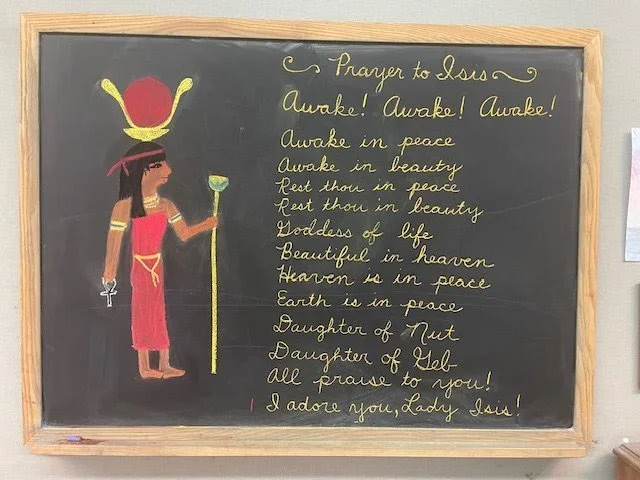 Prayer to Isis
Awake! Awake! Awake!
Awake in peace
Awake in beauty
Rest thou in peace
Rest thou in beauty
Goddess of life
Beautiful in heaven
Heaven is in peace
Earth is in peace
Daughter of Nut
Daughter of Geb
All praise to you!
I adore you, Lady Isis!